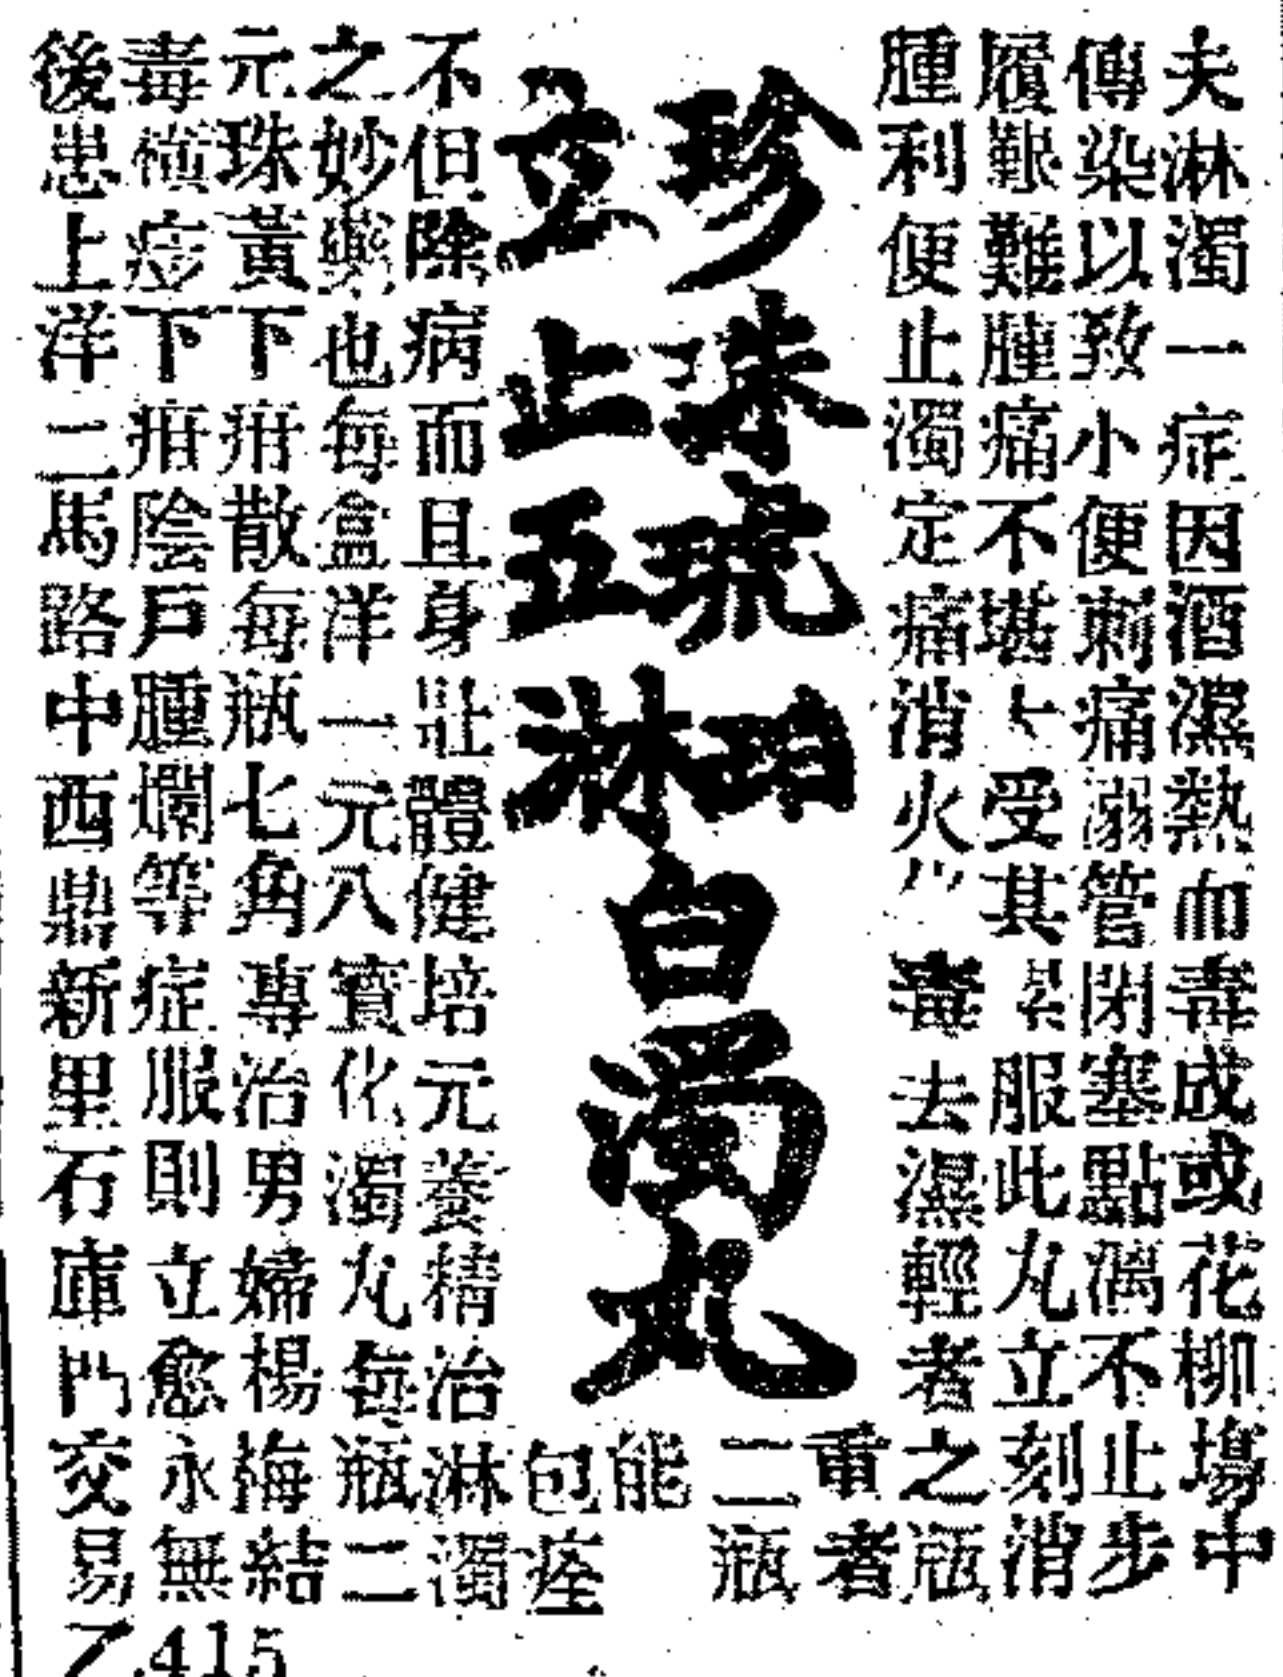 夫淋濁一症因酒濕熱血毒成或花柳塲中
傳染以致小便刺痛溺管閉塞點滴不止步
履艱難腫痛不堪受其累服此丸立刻消
腫利便止濁定痛消火毒去濕輕者之瓶
重者
二瓶
珍珠琥珀
立止五淋
白濁丸
能
包痊
不但除病而且身壯體健培元養精治淋濁
之妙藥也每盒洋一元八寳化濁丸每瓶二
元珠黃下疳散每瓶七角專治男婦楊梅結
毒橫痃下疳陰戶腫爛等症服則立愈永無
後患上洋二馬路中西鼎新里石庫門交易
乙.415